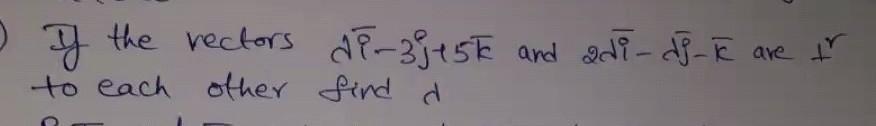 ) If the vectors λī-3j̄+5k̄ and 2λī-λj̄-k̄ are ⊥r
to each other find λ